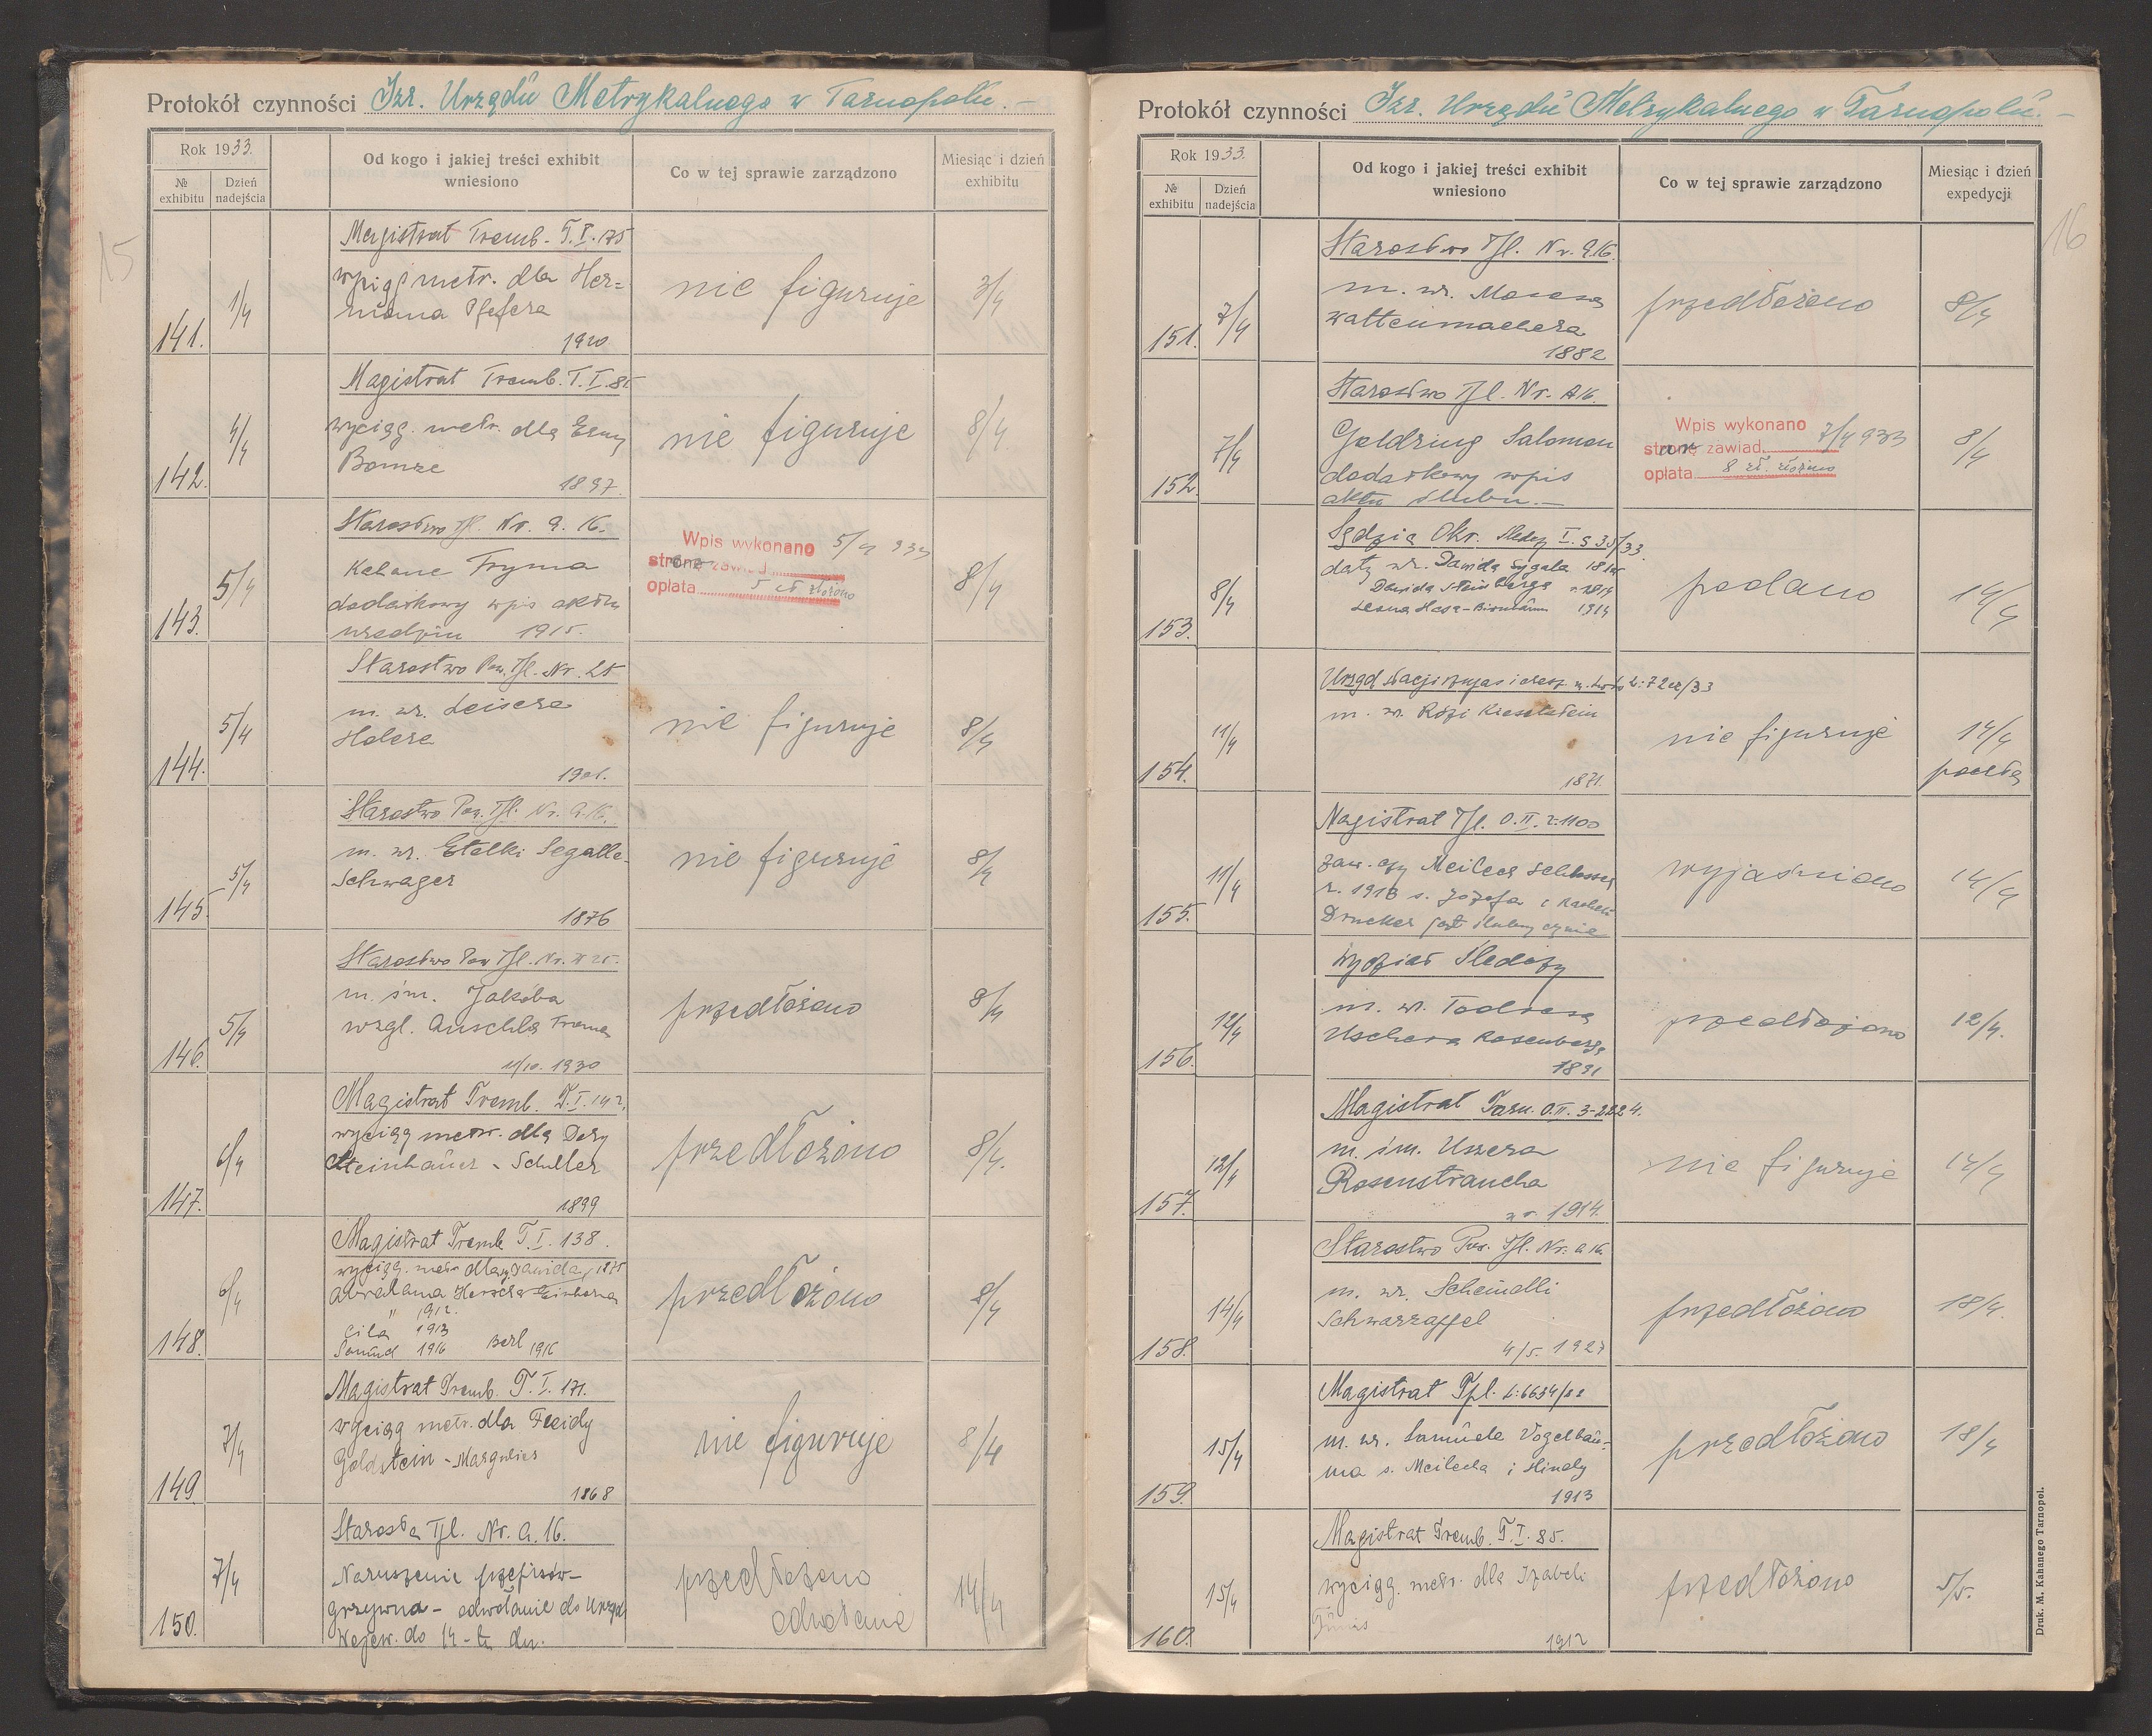 15
Protokół czynności Izr. Urzędu Metrykalnego w Tarnopolu.-
Rok 1933.
№ exhibitu
Dzień nadejścia
Od kogo i jakiej treści exhibit wniesiono
Co w tej sprawie zarządzono
Miesiąc i dzień exhibitu
141.
1/4
Magistrat Tremb. T.I.175
wyciąg metr. dla Her=
mana Pfefera
1920
nie figuruje
3/4
142.
4/4
Magistrat Tremb. T.I.85
wyciąg. metr. dla Erny
Bomze
1897
nie figuruje
8/4
143.
5/4
Starostwo Tpl. Nr. a. 16.
Kahane Fryma
dodatkowy wpis aktu
urodzin 1915.
Wpis wykonano 5/4 933
stronę zawiad.
opłata 5 zł złożono
8/4
144.
5/4
Starostwo Pow. Tpl. Nr. 25
m. ur. Leisera
Holera
1901.
nie figuruje
8/4
145.
5/4
Starostwo Pow. Tpl. Nr. a.16.
m. ur. Etelki Segalle-
Schwager
1876
nie figuruje
8/4
146.
5/4
Starostwo Pow Tpl. Nr.
m. śm. Jakóba
wzgl. Anschla
11/10. 1930
przedłożono
8/4
147.
6/4
Magistrat Tremb. T.I.142.
wyciąg metr. dla Dory
Steinhauer - Schiller
1899
przedłożono
8/4.
148.
6/4
Magistrat Tremb T.I. 138.
wyciąg. metr dla Dawida, 1875
Abrahama Herscha Einhorna
" 1912.
Cila 1913
1916 Berl 1916
przedłożono
8/4
149
7/4
Magistrat Tremb. T.I. 171.
wyciąg metr. dla Freidy
Goldstein - Margulies
1868
nie figuruje
8/4
150.
7/4
Starostwo Tpl. Nr. a. 16.
Naruszenie przepisów-
grzywna - odwołanie do Urzęd.
Wojew. do 14-tu dn.
przedłożono
odwołanie
14/4
16
Protokół czynności Izr. Urzędu Metrykalnego w Tarnopolu.-
Rok 1933.
№ exhibitu
Dzień nadejścia
Od kogo i jakiej treści exhibit wniesiono
Co w tej sprawie zarządzono
Miesiąc i dzień expedycji
151.
7/4
Starostwo Tpl. Nr. a.16.
m. ur. Mosesa
Wattenmachera
1882
przedłożono
8/4
152.
7/4
Starostwo Tpl. Nr. A16.
Goldring Salomon
dodatkowy wpis
aktu ślubu.-
Wpis wykonano 7/4 933
stronę zawiad.
opłata 8 zł. złożono
8/4
153.
8/4
Sędzia Okr. Śledczy I. S 35/33.
daty ur. Dawida
Dawida Steinberga
1914
podano
14/4
154.
11/4
Urząd
m. ur. Rózi
1871.
nie figuruje
14/4
pocztą
155.
11/4
Magistrat Tpl. O.II.2.1100
zaw. czy Meilech Schlosser
r. 1913 s. Józefa i Racheli
Drucker jest ślubny czy nie
wyjaśniono
14/4
156.
12/4
Wydział Śledczy
m. ur. Todresa
Uschera Rosenberga
1891
przedłożono
12/4.
157.
12/4
Magistrat Tarn. O.II. 3-2224.
m. śm. Uszera
Rosenstraucha
z r. 1914.
nie figuruje
14/4
158.
14/4
Starostwo Pow. Tpl. Nr. a 16.
m. ur. Scheindli
Schwarzapfel
4/5. 1927
przedłożono
18/4.
159.
15/4
Magistrat Tpl. L:6634/22
m. ur. Samuela Vogelbau-
ma s. Meilecha i Hindy
1913
przedłożono
18/4
160.
15/4
Magistrat Tremb. T.I. 85.
wyciąg. metr. dla Izabeli
1912
przedłożono
5/5.
Druk. M. Kahanego Tarnopol.